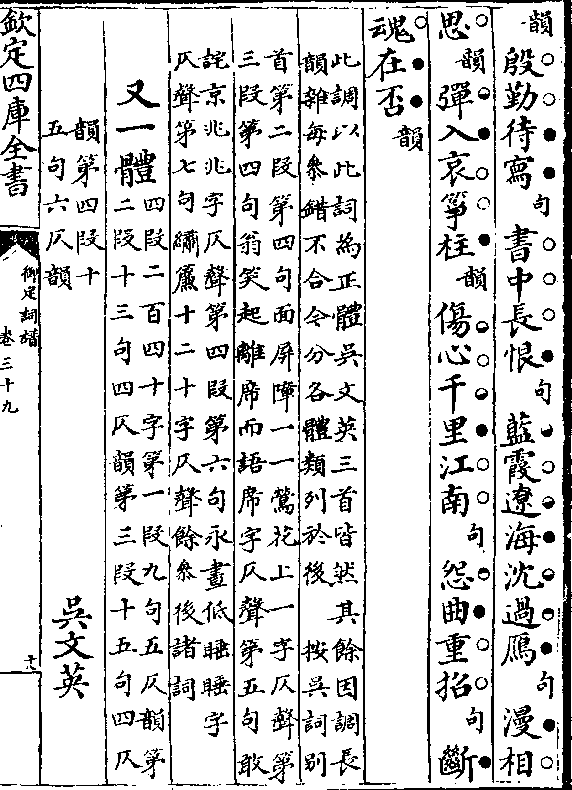 韻 殷勤待寫 句 書中長恨 句 藍霞遼海沈過鴈 句 漫相
思 韻 彈入哀箏柱 韻 傷心千里江南 句 怨曲重招 句 斷
魂在否 韻
此調以此詞為正體吳文英三首皆然其餘因調長
韻雜每叅錯不合今分各體類列於後 按吳詞別
首第二段第四句面屏障一一鶯花上一字仄聲第
三段第四句翁笑起離席而語席字仄聲第五句敢
詫京兆兆字仄聲第四段第六句永晝低睡睡字
仄聲第七句繡簾十二十字仄聲餘叅後諸詞
又一體 四段二百四十字第一段九句五仄韻第
二段十三句四仄韻第三段十五句四仄
韻第四段十
五句六仄韻
吳文英
欽定四庫全書
御定詞譜
卷三十九